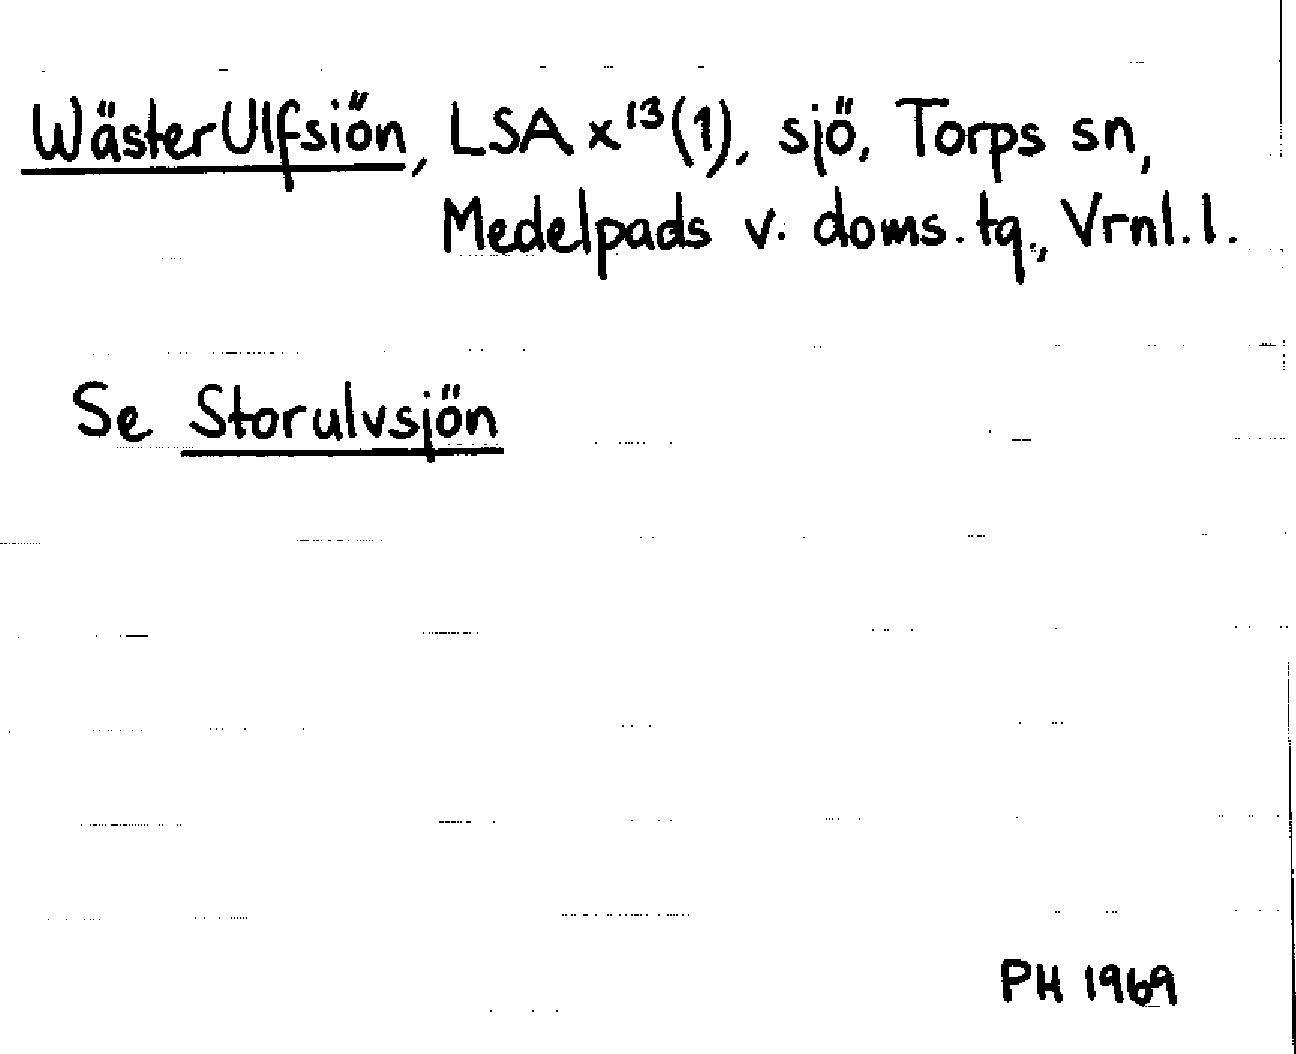 WästerUlfsiön, LSA x¹³(1), sjö, Torps sn,
Medelpads v. doms. tg., Vrnl. l.
Se Storulvsjön
PH 1969